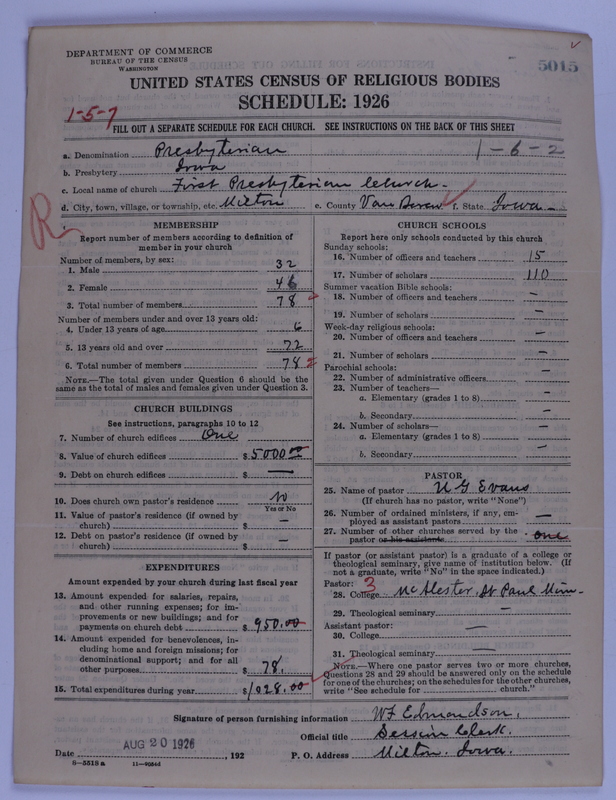 DEPARTMENT OF COMMERCE
BUREAU OF THE CENSUS
WASHINGTON
5015
UNITED STATES CENSUS OF RELIGIOUS BODIES
SCHEDULE: 1926
1-5-7
FILL OUT A SEPARATE SCHEDULE FOR EACH CHURCH. SEE INSTRUCTIONS ON THE BACK OF THIS SHEET
a. Denomination Presbyterian 1-6-2
b. Presbytery Iowa
c. Local name of church First Presbyterian Church.
d. City, town, village, or township, etc. Milton e. County Van Buren f. State Iowa
R
MEMBERSHIP
Report number of members according to definition of
member in your church
Number of members, by sex:
1. Male 32
2. Female 46
3. Total number of members 78
Number of members under and over 13 years old:
4. Under 13 years of age 6
5. 13 years old and over 72
6. Total number of members 78
NOTE.—The total given under Question 6 should be
same as the total of males and females given under Question 3.
CHURCH BUILDINGS
See instructions, paragraphs 10 to 12
7. Number of church edifices One
8. Value of church edifices $5000.00
9. Debt on church edifices $ —
10. Does church own pastor's residence No
Yes or No
11. Value of pastor's residence (if owned by
church) $ —
12. Debt on pastor's residence (if owned by
church) $ —
EXPENDITURES
Amount expended by your church during last fiscal year
13. Amount expended for salaries, repairs,
and other running expenses; for im-
provements or new buildings; and for
payments on church debt $ 950.00
14. Amount expended for benevolences, in-
cluding home and foreign missions; for
denominational support; and for all
other purposes $ 78.
15. Total expenditures during year $1028.00
CHURCH SCHOOLS
Report here only schools conducted by this church
Sunday schools:
16. Number of officers and teachers 15
17. Number of scholars 110
Summer vacation Bible schools:
18. Number of officers and teachers —
19. Number of scholars —
Week-day religious schools:
20. Number of officers and teachers —
21. Number of scholars —
Parochial schools:
22. Number of administrative officers —
23. Number of teachers—
a. Elementary (grades 1 to 8) —
b. Secondary —
24. Number of scholars—
a. Elementary (grades 1 to 8) —
b. Secondary —
PASTOR
25. Name of pastor U G Evans
(If church has no pastor, write "None")
26. Number of ordained ministers, if any, em-
ployed as assistant pastors —
27. Number of other churches served by the
pastor or his assistants one
If pastor (or assistant pastor) is a graduate of a college or
theological seminary, give name of institution below. (If
not a graduate, write "No" in the space indicated.)
Pastor: 3
28. College McAlester, St Paul Minn
29. Theological seminary —
Assistant pastor:
30. College —
31. Theological seminary —
NOTE.—Where one pastor serves two or more churches,
Questions 28 and 29 should be answered only on the schedule
for one of the churches; on the schedules for the other churches,
write "See schedule for church."
Signature of person furnishing information W F Edmondson,
Official title Session Clerk.
Date AUG 20 1926, 192 P. O. Address Milton, Iowa.
8—5518 a 11—9054d